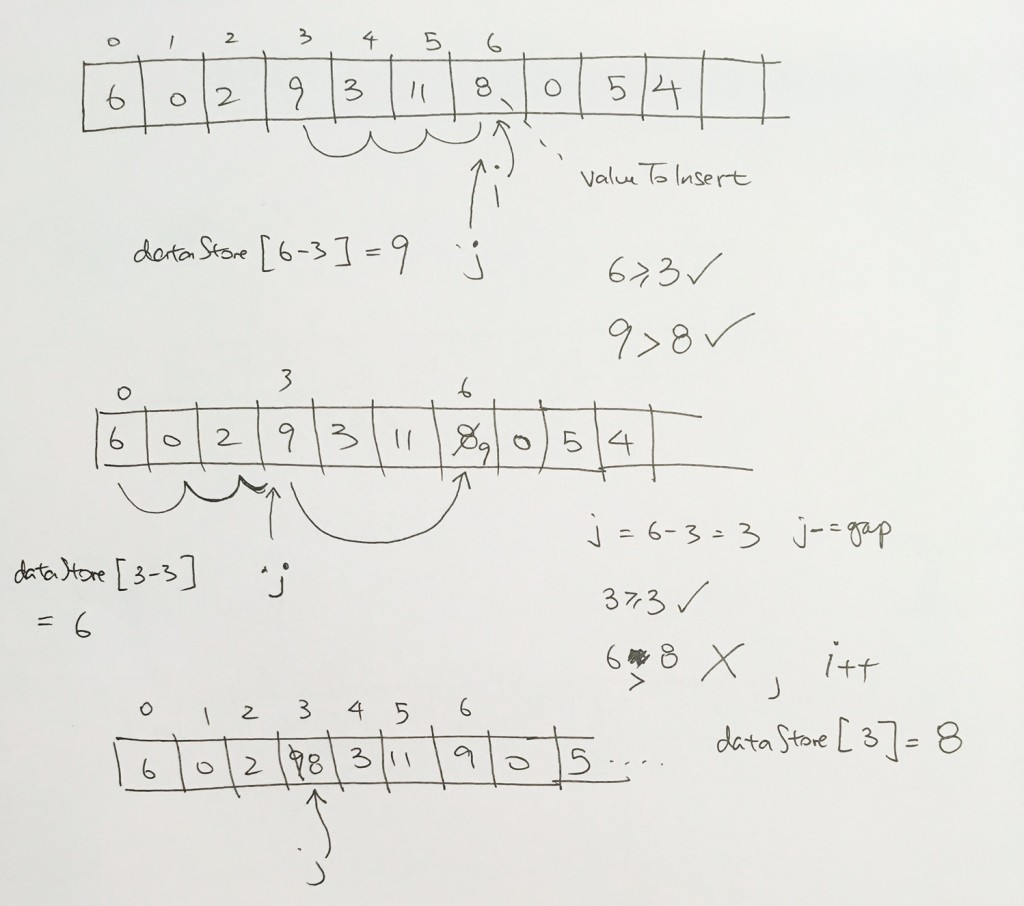 0 1 2 3 4 5 6
6 0 2 9 3 11 8 0 5 4
valueToInsert
i
dataStore [6-3] = 9 j
6⩾3 ✓
9>8 ✓
0 3 6
6 0 2 9 3 11 8 9 0 5 4
j = 6-3 = 3 j-=gap
dataStore [3-3] j
= 6
3⩾3 ✓
6 > 8 X , i++
0 1 2 3 4 5 6
dataStore [3] = 8
6 0 2 9 8 3 11 9 0 5 ....
j